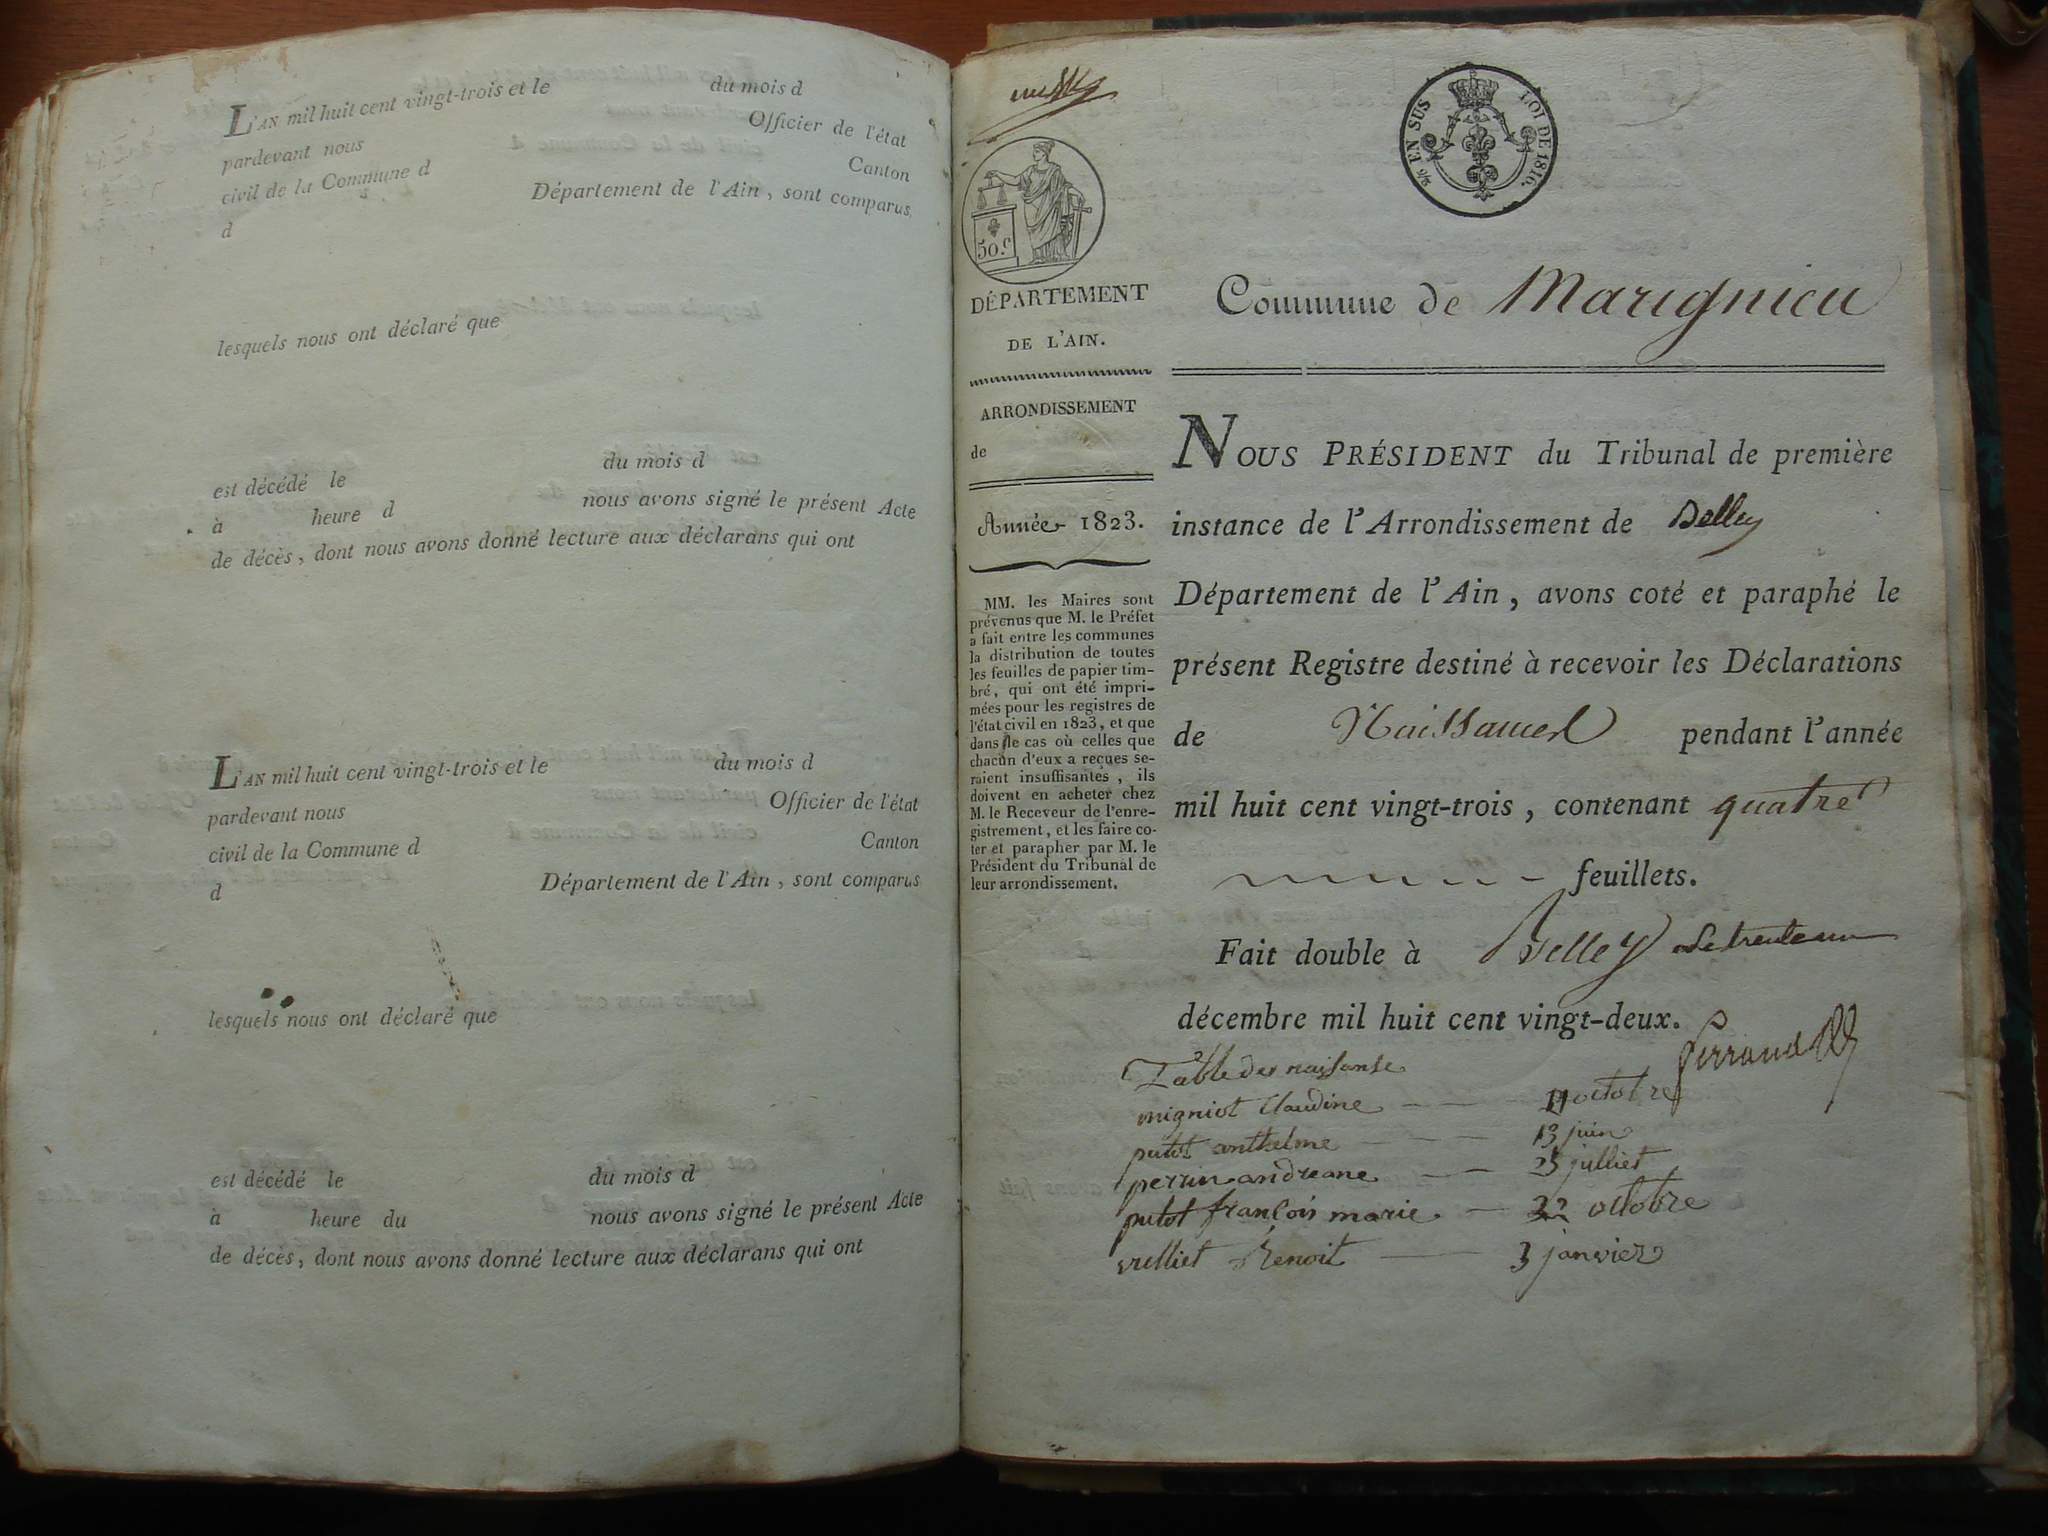 L'AN mil huit cent vingt-trois et le du mois d
pardevant nous Officier de l'état
civil de la Commune d Canton
d Département de l'Ain, sont comparus
lesquels nous ont déclaré que
est décédé le du mois d
à heure d nous avons signé le présent Acte
de décès, dont nous avons donné lecture aux déclarans qui ont
L'AN mil huit cent vingt-trois et le du mois d
pardevant nous Officier de l'état
civil de la Commune d Canton
d Département de l'Ain, sont comparus
lesquels nous ont déclaré que
est décédé le du mois d
à heure du nous avons signé le présent Acte
de décès, dont nous avons donné lecture aux déclarans qui ont
EN SUS LOI DE 1816.
50.c
DÉPARTEMENT
DE L'AIN.
ARRONDISSEMENT
de
Année 1823.
MM. les Maires sont
prévenus que M. le Préfet
a fait entre les communes
la distribution de toutes
les feuilles de papier tim-
bré, qui ont été impri-
mées pour les registres de
l'état civil en 1823, et que
dans le cas où celles que
chacun d'eux a reçues se-
raient insuffisantes, ils
doivent en acheter chez
M. le Receveur de l'enre-
gistrement, et les faire co-
ter et parapher par M. le
Président du Tribunal de
leur arrondissement.
Commune de Marignieu
NOUS PRÉSIDENT du Tribunal de première
instance de l'Arrondissement de Belley
Département de l'Ain, avons coté et paraphé le
présent Registre destiné à recevoir les Déclarations
de Naissances pendant l'année
mil huit cent vingt-trois, contenant quatre
feuillets.
Fait double à Belley le trente un
décembre mil huit cent vingt-deux.
Table des naissanse
migniot Claudine octobre
putot anthelme 13 juin
perrin andreane 25 julliet
putot françois marie 22 octobre
vulliet Benoit 3 janvier